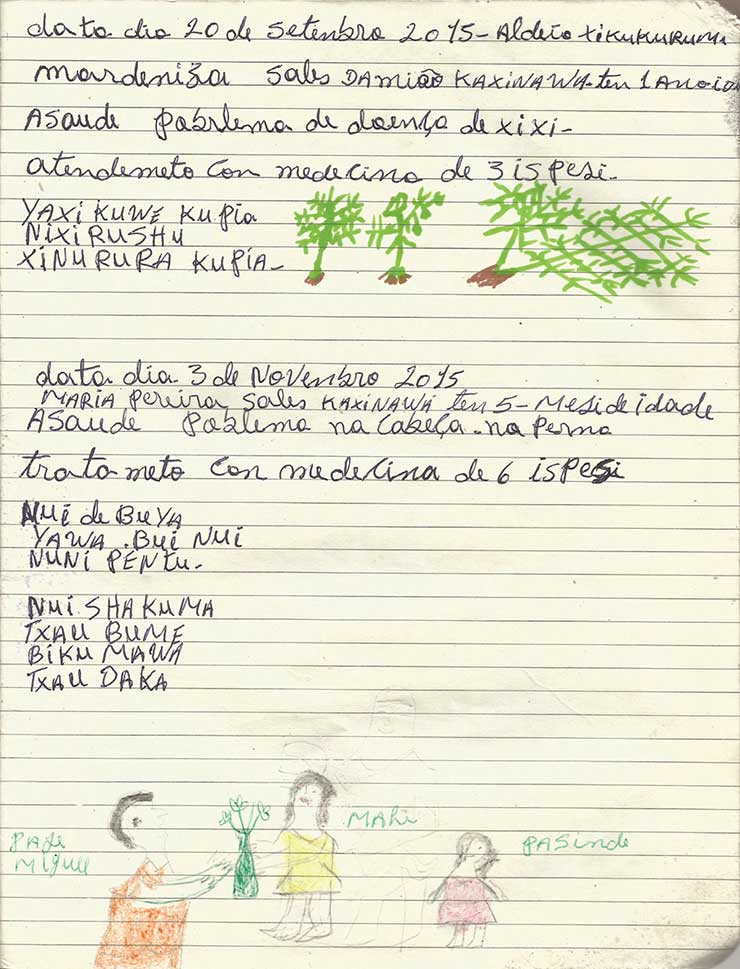 data dia 20 de setenbro 2015 - Aldeia XIKUKURUMA
mardeniza Sales DAMIÃO KAXINAWA - ten 1 Ano
ASaude pobrlema de doença de xixi -
atendemeto con medecina de 3 ispesi -
YAXI KUWE KUPIA
NIXI RUSHU
XINU RURA KUPIA -
data dia 3 de Novenbro 2015
MARIA Pereira Sales KAXINAWA ten 5 - Mesi de idade
ASaude poblema na cabeça . na perna
tratameto con medecina de 6 ispesi
NUI de BUYA
YAWA . BUI NUI
NUNI PENTU -
NUI SHAKUMA
TXAU BUME
BIKU MAWA
TXAU DAKA
MAhi
PASinde
PAJE
MIGUEL